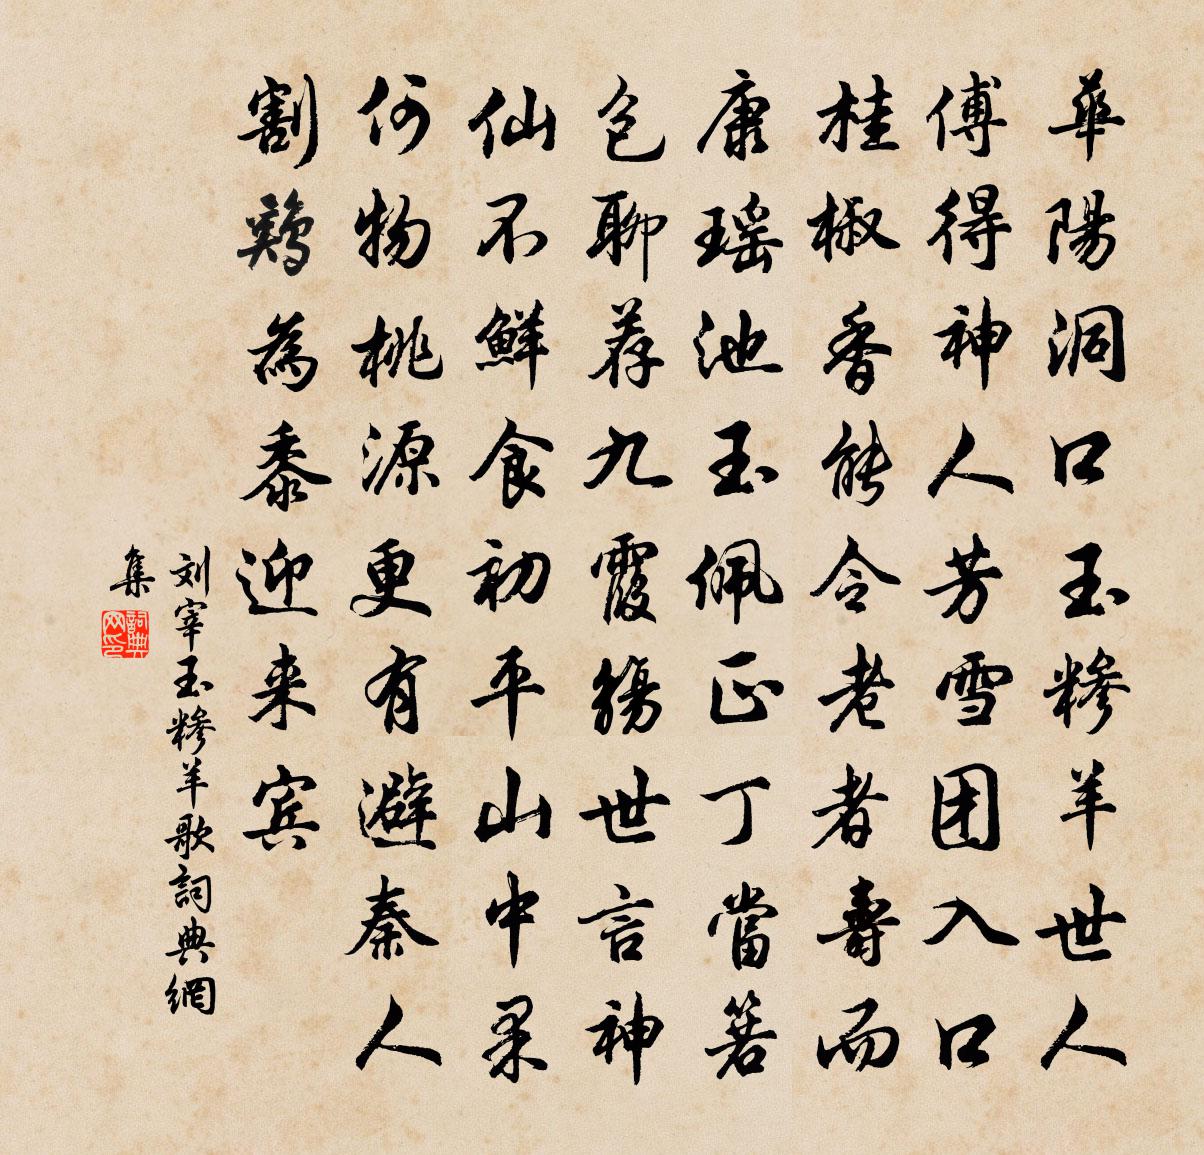 華陽洞口玉糝羊世人
傅得神人芳雪团入口
桂椒香能令老者壽而
康瑶池玉佩正丁當箬
包聊荐九霞觞世言神
仙不鮮食初平山中果
何物桃源更有避秦人
割鶏為黍迎来宾
刘宰玉糝羊歌詞典網
集
詞典网印